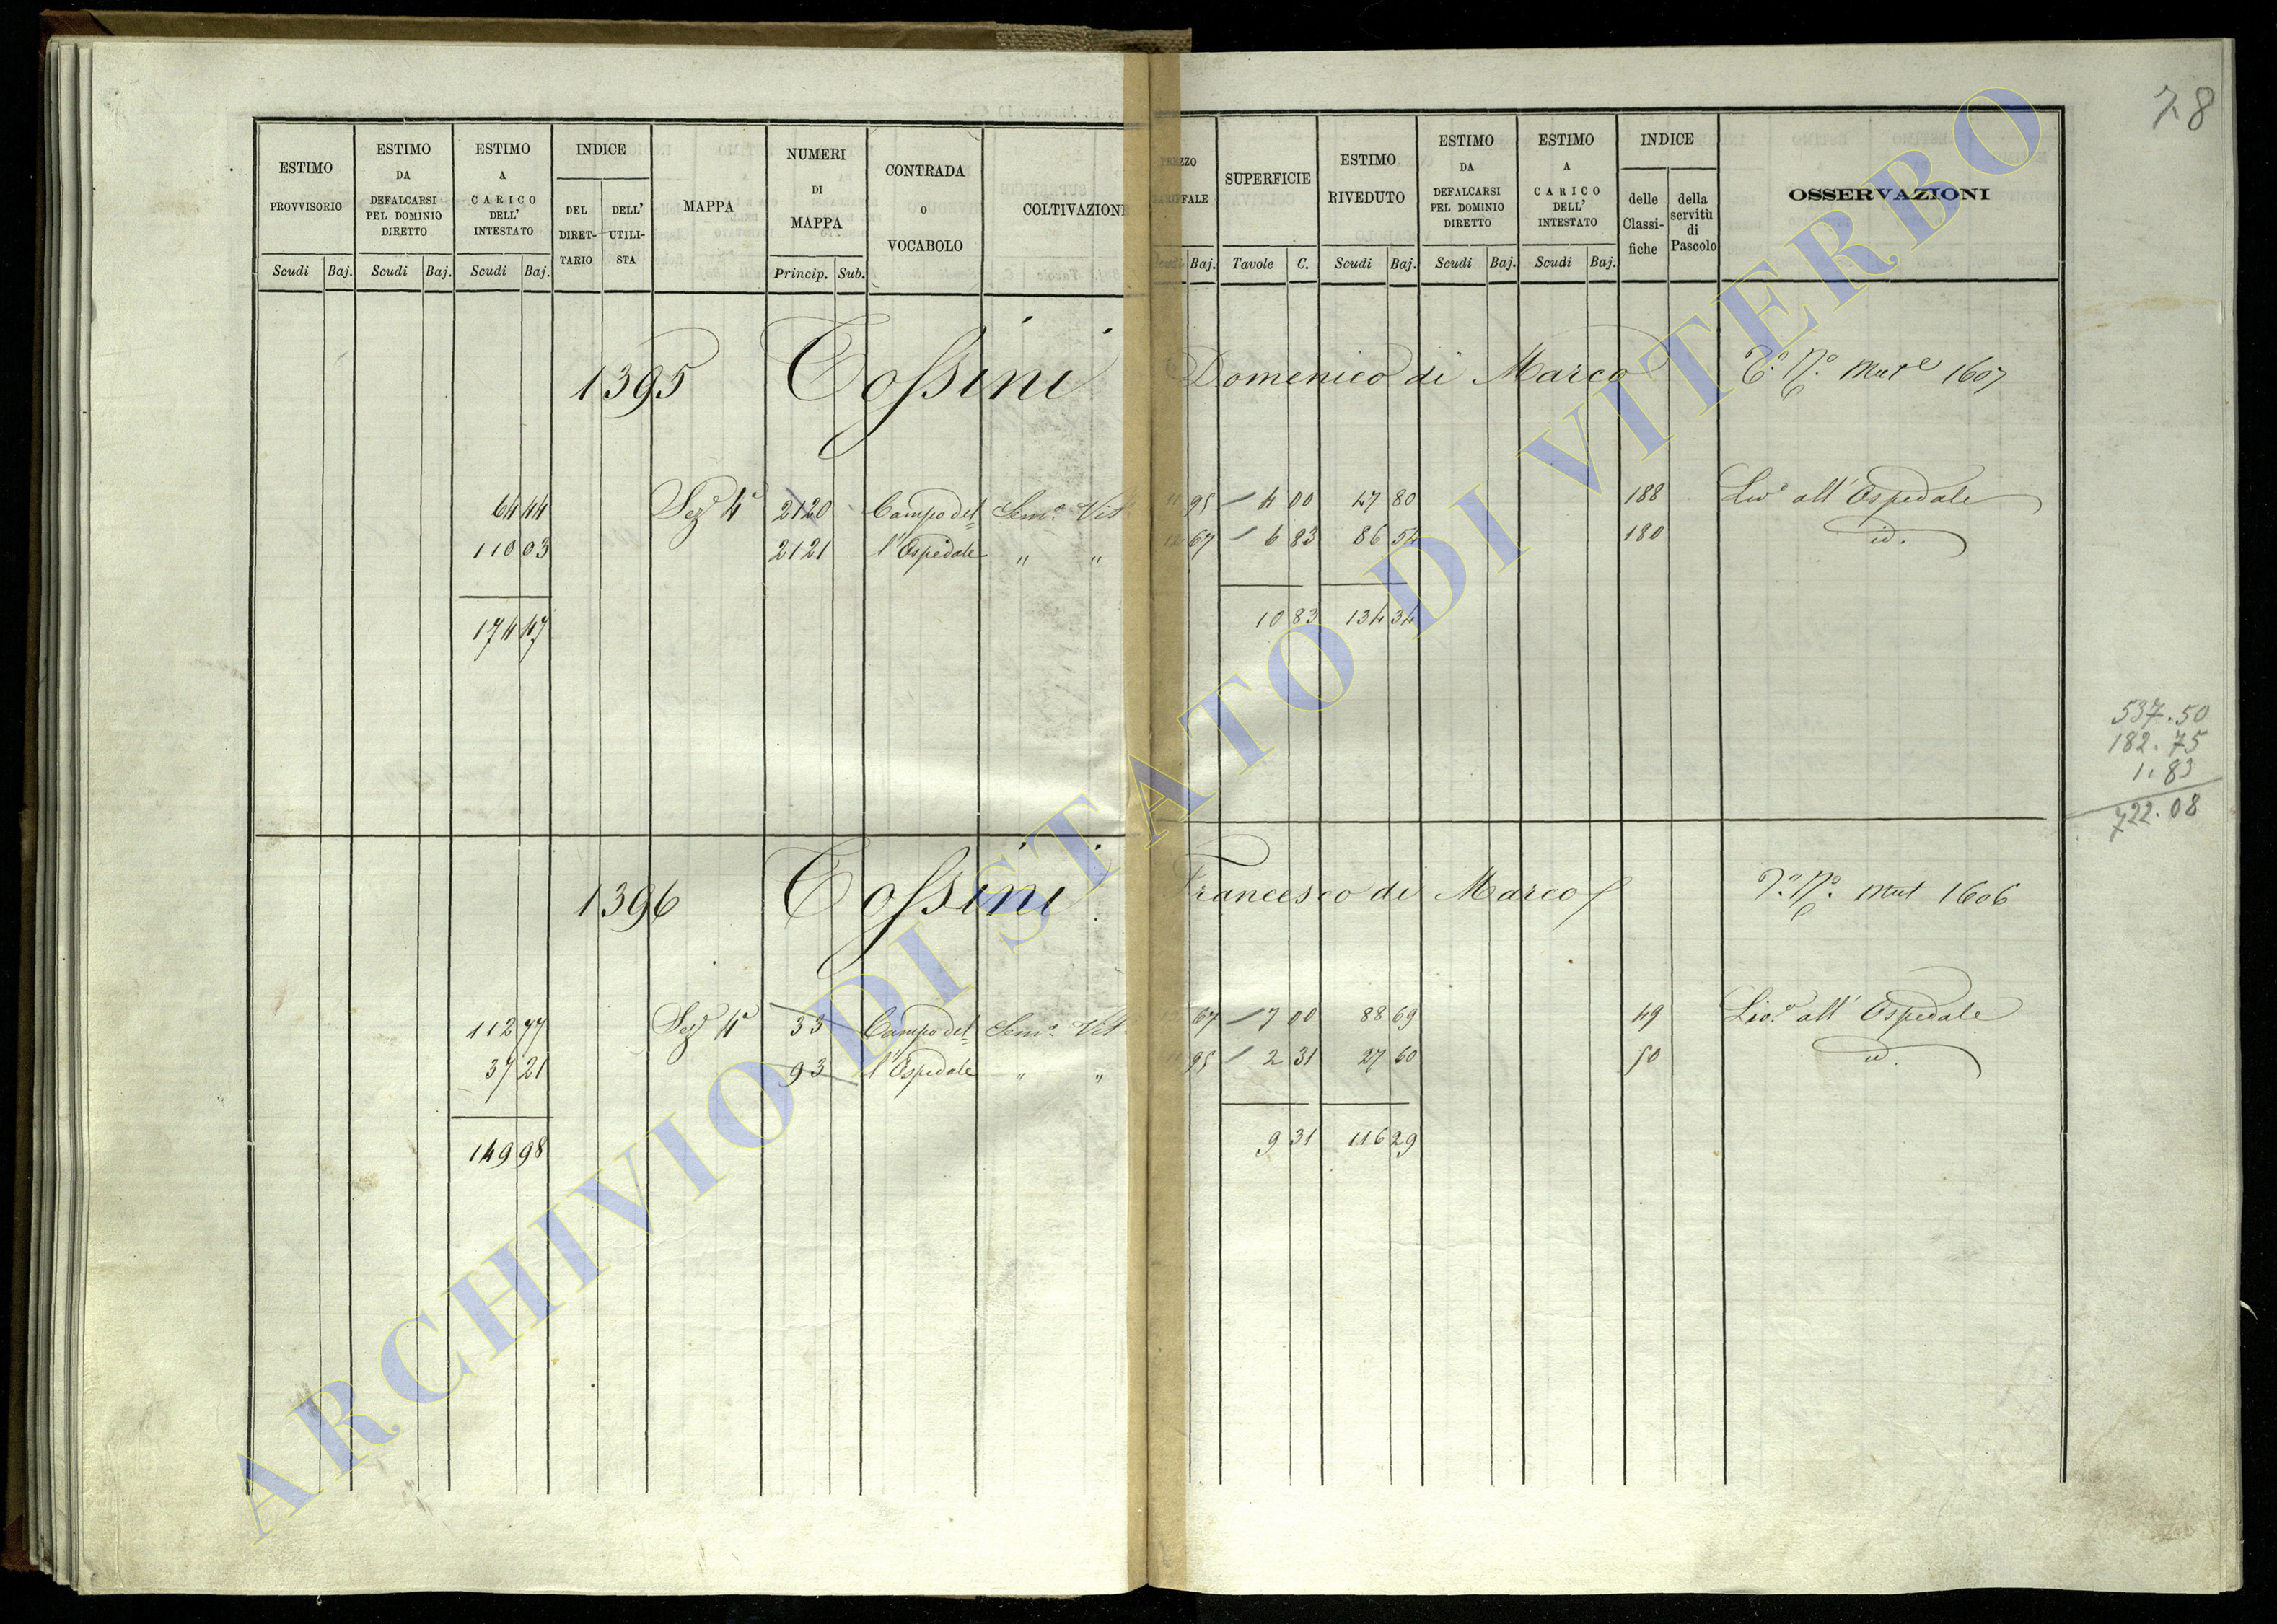 78
ESTIMO PROVVISORIO
ESTIMO DA DEFALCARSI PEL DOMINIO DIRETTO
ESTIMO A CARICO DELL' INTESTATO
INDICE
DEL DIRET-TARIO
DELL' UTILI-STA
MAPPA
NUMERI DI MAPPA
CONTRADA O VOCABOLO
COLTIVAZIONE
SUPERFICIE
ESTIMO RIVEDUTO
ESTIMO DA DEFALCARSI PEL DOMINIO DIRETTO
ESTIMO A CARICO DELL' INTESTATO
INDICE
delle Classi-fiche
della servitù di Pascolo
OSSERVAZIONI
Scudi Baj. Scudi Baj. Scudi Baj. Princip. Sub. Scudi Baj. Tavole C. Scudi Baj. Scudi Baj. Scudi Baj.
1395 Tossini Domenico di Marco
Mut 1607
64 44 Sez 4ª 2120 Campo del= Sem.o Vit 95 4 00 47 80 188 Liv.o all' Ospedale
110 03 2121 l'Ospedale " " 67 6 83 86 54 180 id.
174 47 10 83 134 34
537.50
182.75
1.83
722.08
1396 Tossini Francesco di Marco
Mut 1606
112 77 Sez 4ª 33 Campo del= Sem.o Vit 67 7 00 88 69 49 Liv.o all' Ospedale
37 21 93 l'Ospedale " " 95 2 31 27 60 50 id.
149 98 9 31 116 29
ARCHIVIO DI STATO DI VITERBO